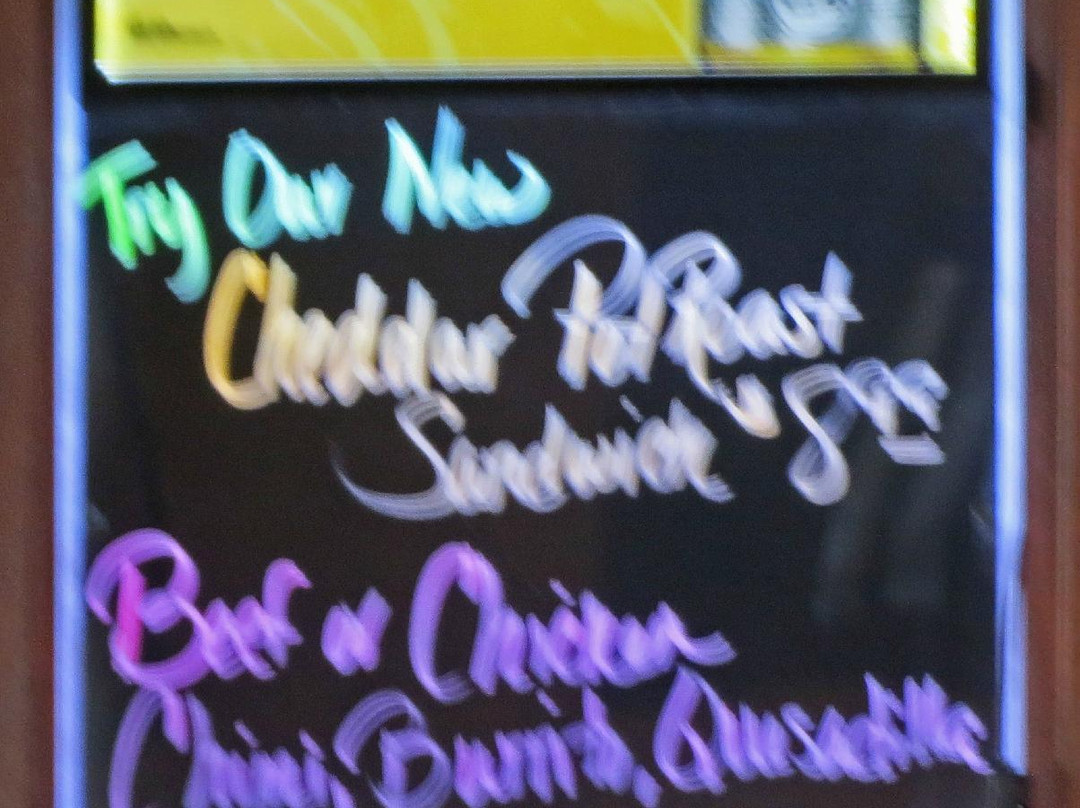 Try Our New
Cheddar Pot Roast
Sandwich
Beef or Chicken
Chimi, Burrito, Quesadilla